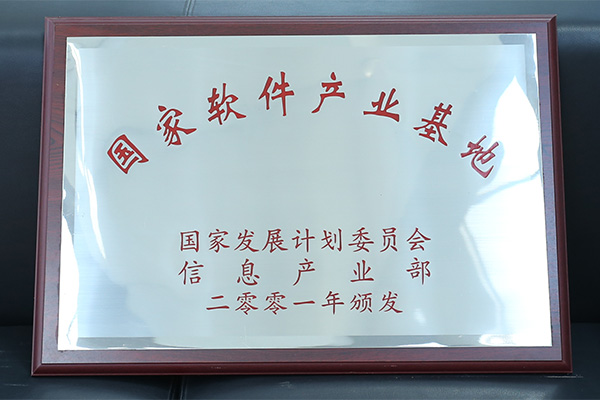 国家软件产业基地
国家发展计划委员会
信息产业部
二零零一年颁发